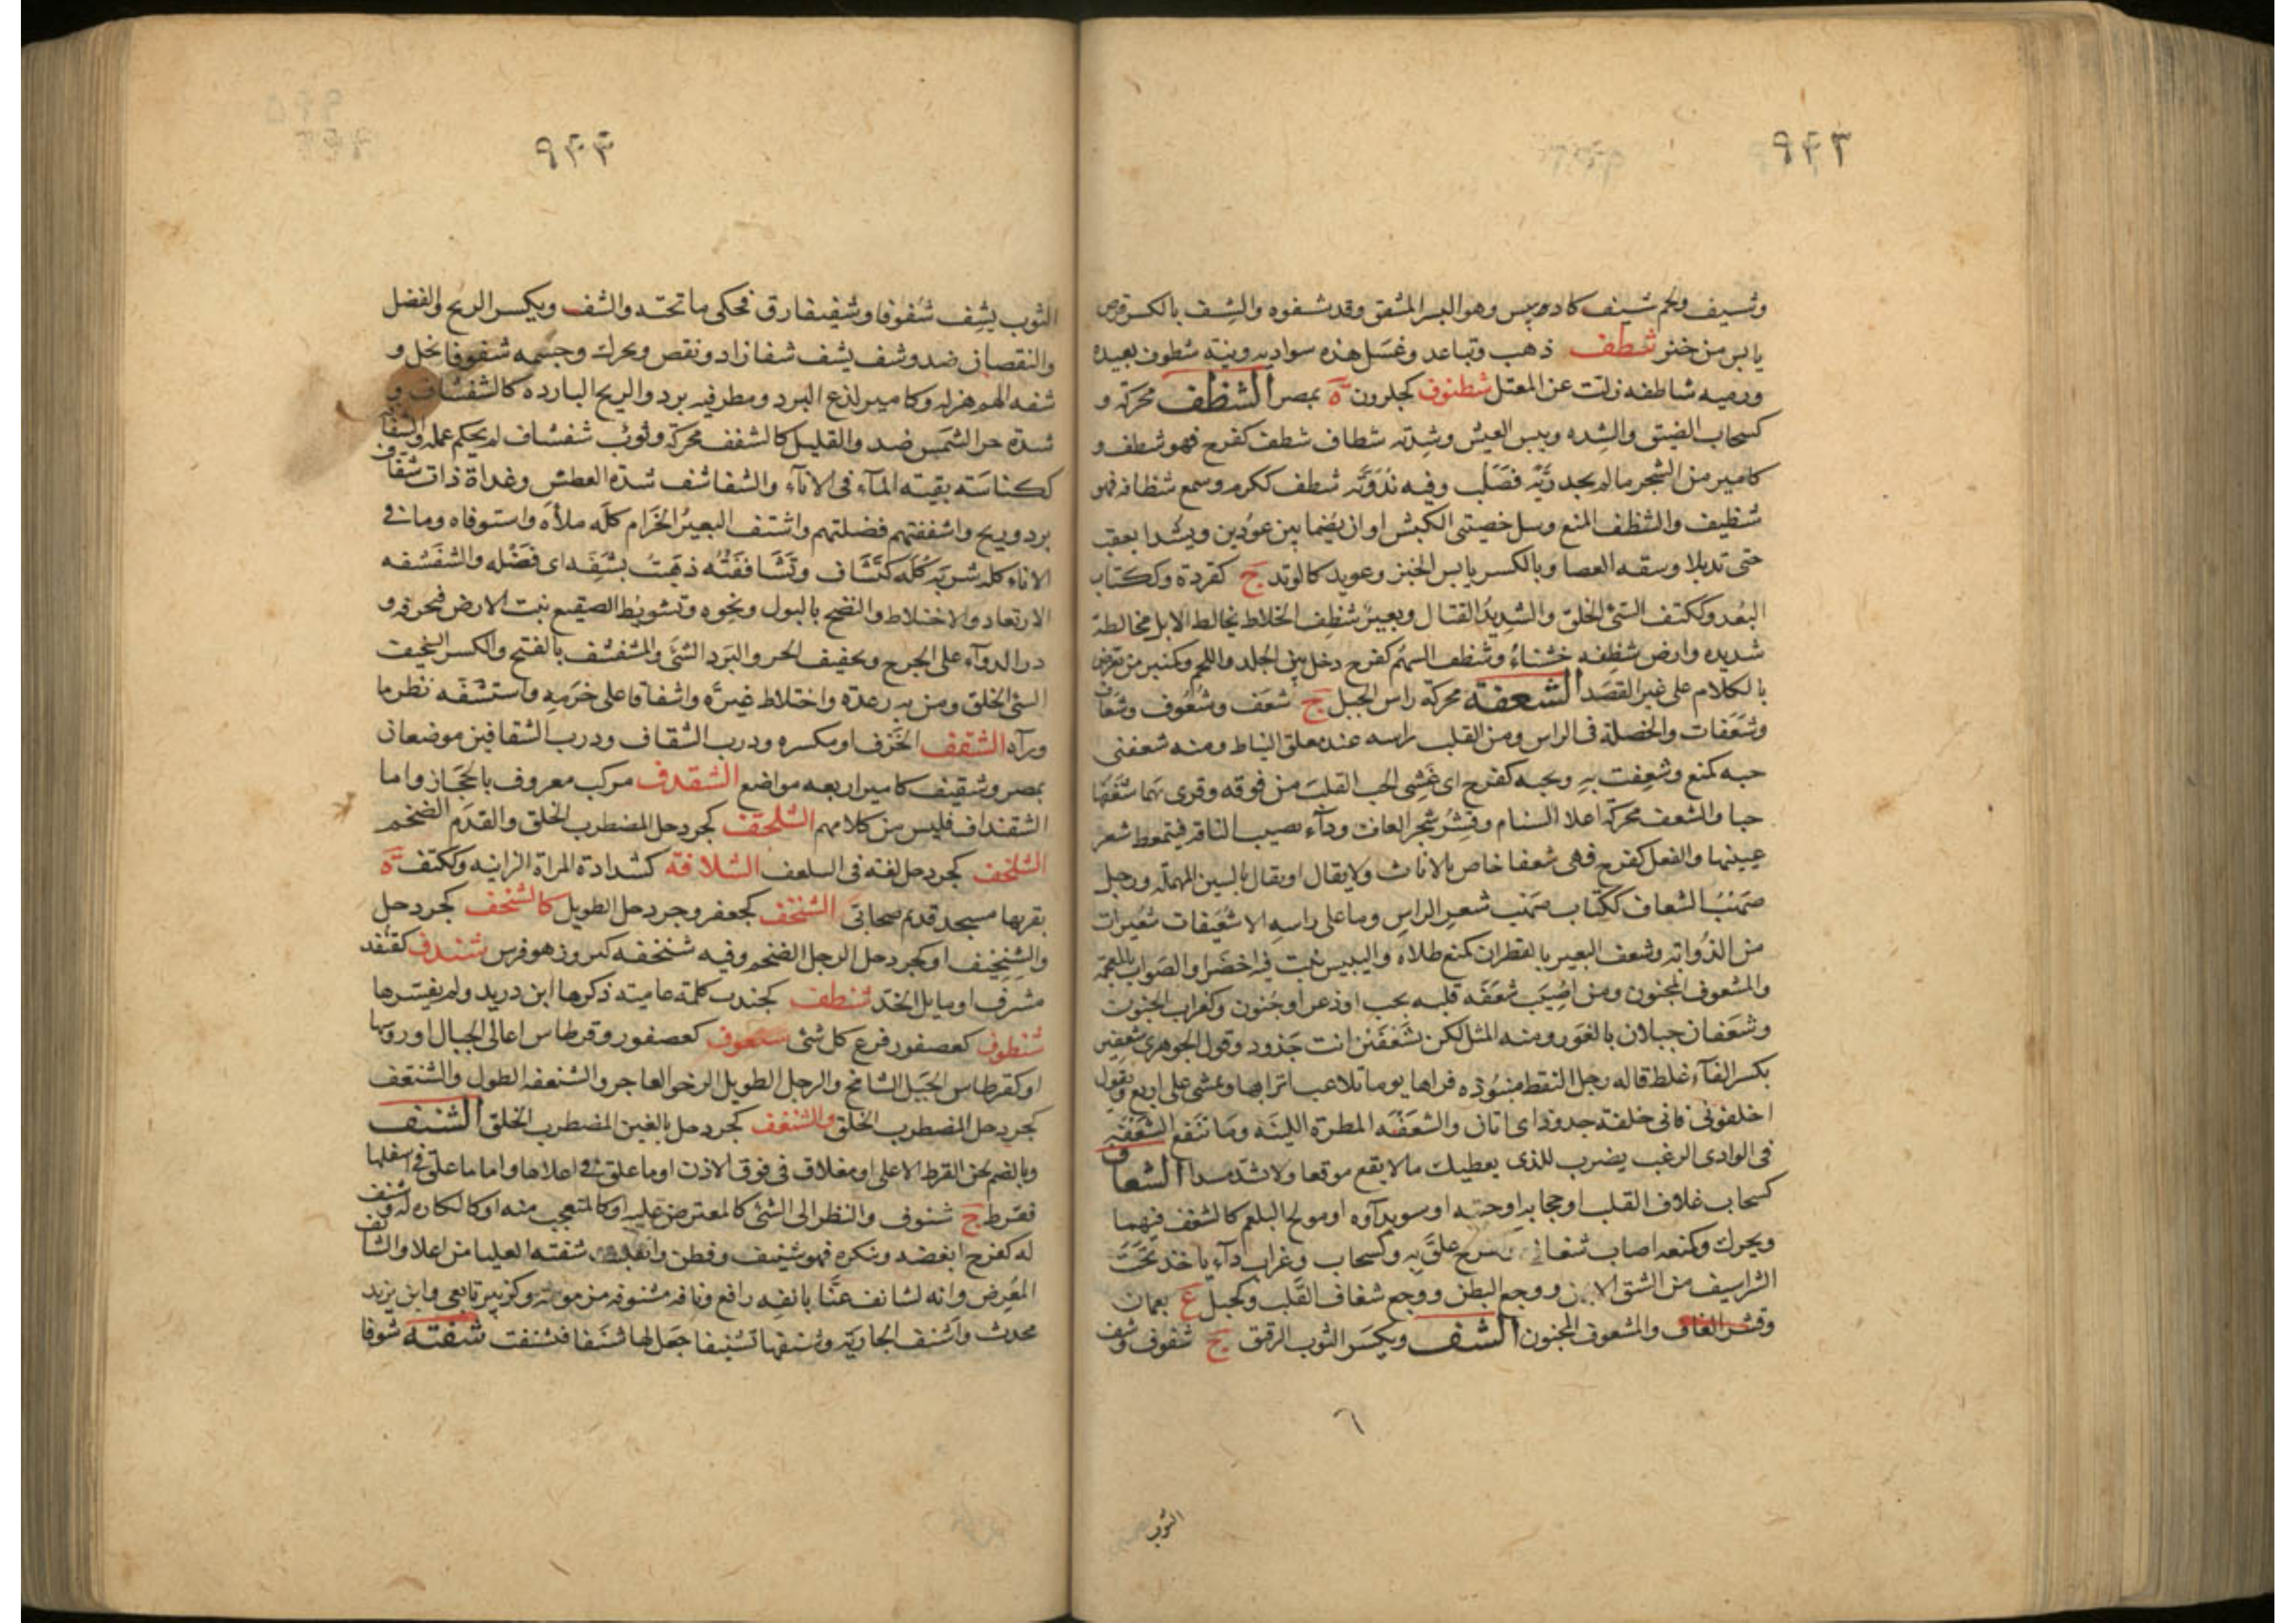 ٩٤٣
وشسيف ولحم شسيف كاد ييبس وهو البسر المشقق وقد شسفوه والشسف بالكسر قرص
يابس من خثر شطف ذهب وتباعد وغسل هذه سواديه ونية شطوف بعيدة
ورميه شاطفه زلت عن المقتل شطنوف كحلزون ة بمصر الشظف محركة و
كسحاب الضيق والشده ويبس العيش وشدته شظاف شظف كفرح فهو شظف و
كامير من الشجر ما لم يجد ريه فصلب وفيه ندوته شظف ككرم وسمع شظافه فهو
شظيف والشظف المنع وسل خصيتى الكبش او ان يضما بين عودين ويشدا بعقب
حتى تذبلا وشقه العصا وبالكسر يابس الخبز وعويد كالوتد ج كقردة وككتاب
البعد وككتف السئ الخلق والشديد القتال وبعير شظف الخلاط يخالط الابل مخالطة
شديده وارض شظفه خشناء وشظف السهم كفرح دخل بين الجلد واللحم وكمنبر من يعرض
بالكلام على غير القصد الشعفة محركة راس الجبل ج شعف وشعوف وشعاف
وشعفات والخصلة فى الراس ومن القلب راسه عند معلق النياط ومنه شعفنى
حبه كمنع وشعفت به وبحبه كفرح اى غشى الحب القلب من فوقه وقرى بهما شعفها
حبا والشعف محركة اعلا السنام وقشر شجر الغاف وداء يصيب الناقه فيتمعط شعر
عينيها والفعل كفرح فهى شعفا خاص بالاناث ولا يقال او يقال بالسين المهملة ورجل
صهب الشعاف ككتاب صهب شعر الراس وما على راسه الا شعيفات شعيرات
من الذوابه وشعف البعير بالقطران كمنع طلاه واليبيس نبت فيه اخضر او الصواب بالمعجمة
والمشعوف المجنون ومن اصيب شعفه قلبه بحب او ذعر او جنون وكغراب الجنون
وشعفان جبلان بالغور ومنه المثل لكن بشعفين انت جدود وقول الجوهرى شعفين
بكسر الفاء غلط قاله رجل التقط منبوذه فراها يوما تلاعب اترابها وتمشى على اربع وتقول
احلبونى فانى خلفة جدود اى اتان والشعفه المطرة اللينه وما تنفع الشعفه
فى الوادى الرغب يضرب للذى يعطيك ما لا يقع موقعا ولا يسد مسدا الشغاف
كسحاب غلاف القلب او حجابه او حبته او سويداوه او مولج البلغم كالشغف فيهما
ويحرك وكمنعه اصاب شغافه وكفرح علق به وكسحاب وغراب داء ياخذ تحت
الشراسيف من الشق الايمن ووجع البطن ووجع شغاف القلب وكجبل ع بعمان
وقشر الغاف والمشغوف المجنون الشف ويكسر الثوب الرقيق ج شفوف وشف
٦
الثوب
٩٤٤
الثوب يشف شفوفا وشفيفا رق فحكى ما تحته والشف ويكسر الربح والفضل
والنقصان ضد وشف يشف شفا زاد ونقص ويحرك وجسمه شفوفا نحل و
شفه الهم هزله وكامير لذع البرد ومطر فيه برد والريح الباردة كالشفشاف و
شدة حر الشمس ضد والقليل كالشفف محركة وثوب شفشاف لم يحكم عمله والشفافة
ككناسته بقيته الماء فى الاناء والشفاشف شدة العطش وغداة ذات شفاف
برد وريح واشففتهم فضلتهم واشتف البعير الحزام كله ملأه واستوفاه وما فى
الاناء كله شربه كله كتشاف وتشاففته ذهبت بشفه اى فضله والشفشفه
الارتعاد والاختلاط والنضح بالبول ونحوه وتشويط الصقيع نبت الارض فيحرقه و
ذر الدواء على الجرح وتجفيف الحر والبرد الشئ والمشفشف بالفتح والكسر السخيف
السئ الخلق ومن به رعدة واختلاط غيرة واشفاقا على حرمه واستشفه نظر ما
وراه الشقف الخزف او مكسره ودرب الشقاف ودرب الشقافين موضعان
بمصر وشقيف كامير اربعه مواضع الشقدف مركب معروف بالحجاز واما
الشقنداف فليس من كلامهم الشلحقف كجردحل المضطرب الخلق والقدم الضخم
الشلخف كجردحل لغة فى السلعف الشلافة كشدادة المراة الزانيه وككتف ة
بقربها مسجد قديم صحابى الشنخف كجعفر وجردحل الطويل كالشنحف كجردحل
والشنخيف او كجردحل الرجل الضخم وفيه شنخفه كبر وزهو فرس شندف كقنفد
مشرف او مايل الخد شنطف كجندب كلمة عاميته ذكرها ابن دريد ولم يفسرها
شنطوف كعصفور فرع كل شئ شنعوف كعصفور وقرطاس اعالى الجبال او روسها
او كقرطاس الجبل الشامخ والرجل الطويل الرخو العاجز والشنعفه الطول والشنعف
كجردحل المضطرب الخلق والشنغف كجردحل بالغين المضطرب الخلق الشنف
وبالضم لحن القرط الاعلى او معلاق فى فوق الاذن او ما علق فى اعلاها واما ما علق فى اسفلها
فقرط ج شنوف والنظر الى الشئ كالمعترض عليه او كالمتعجب منه او كالكاره له وشنف
له كفرح ابغضه وتنكره فهو شنف وفطن وانقلبت شفته العليا من اعلا والشانف
المعرض وانه لشانف عنا بانفه رافع وناقه مشنوفه مزمومة وكزبير تابعى وابن يزيد
محدث واشنف الجارية وشنفها تشنيفا جعل لها شنفا فتشنفت شفته شوفا